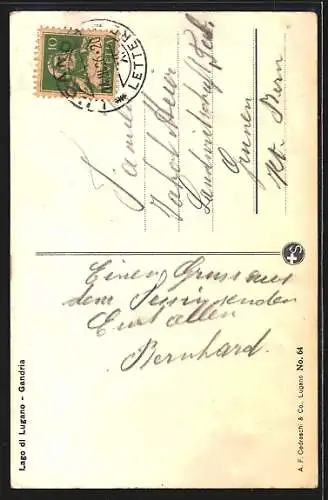 Lago di Lugano - Gandria
Einen Gruss aus
dem Tessin senden
Euch allen
Bernhard.
A. F. Cedraschi & Co., Lugano No. 64
S
10
HELVETIA
LETTER
Familie
Jakob
Landwirtschaft
Kt. Bern